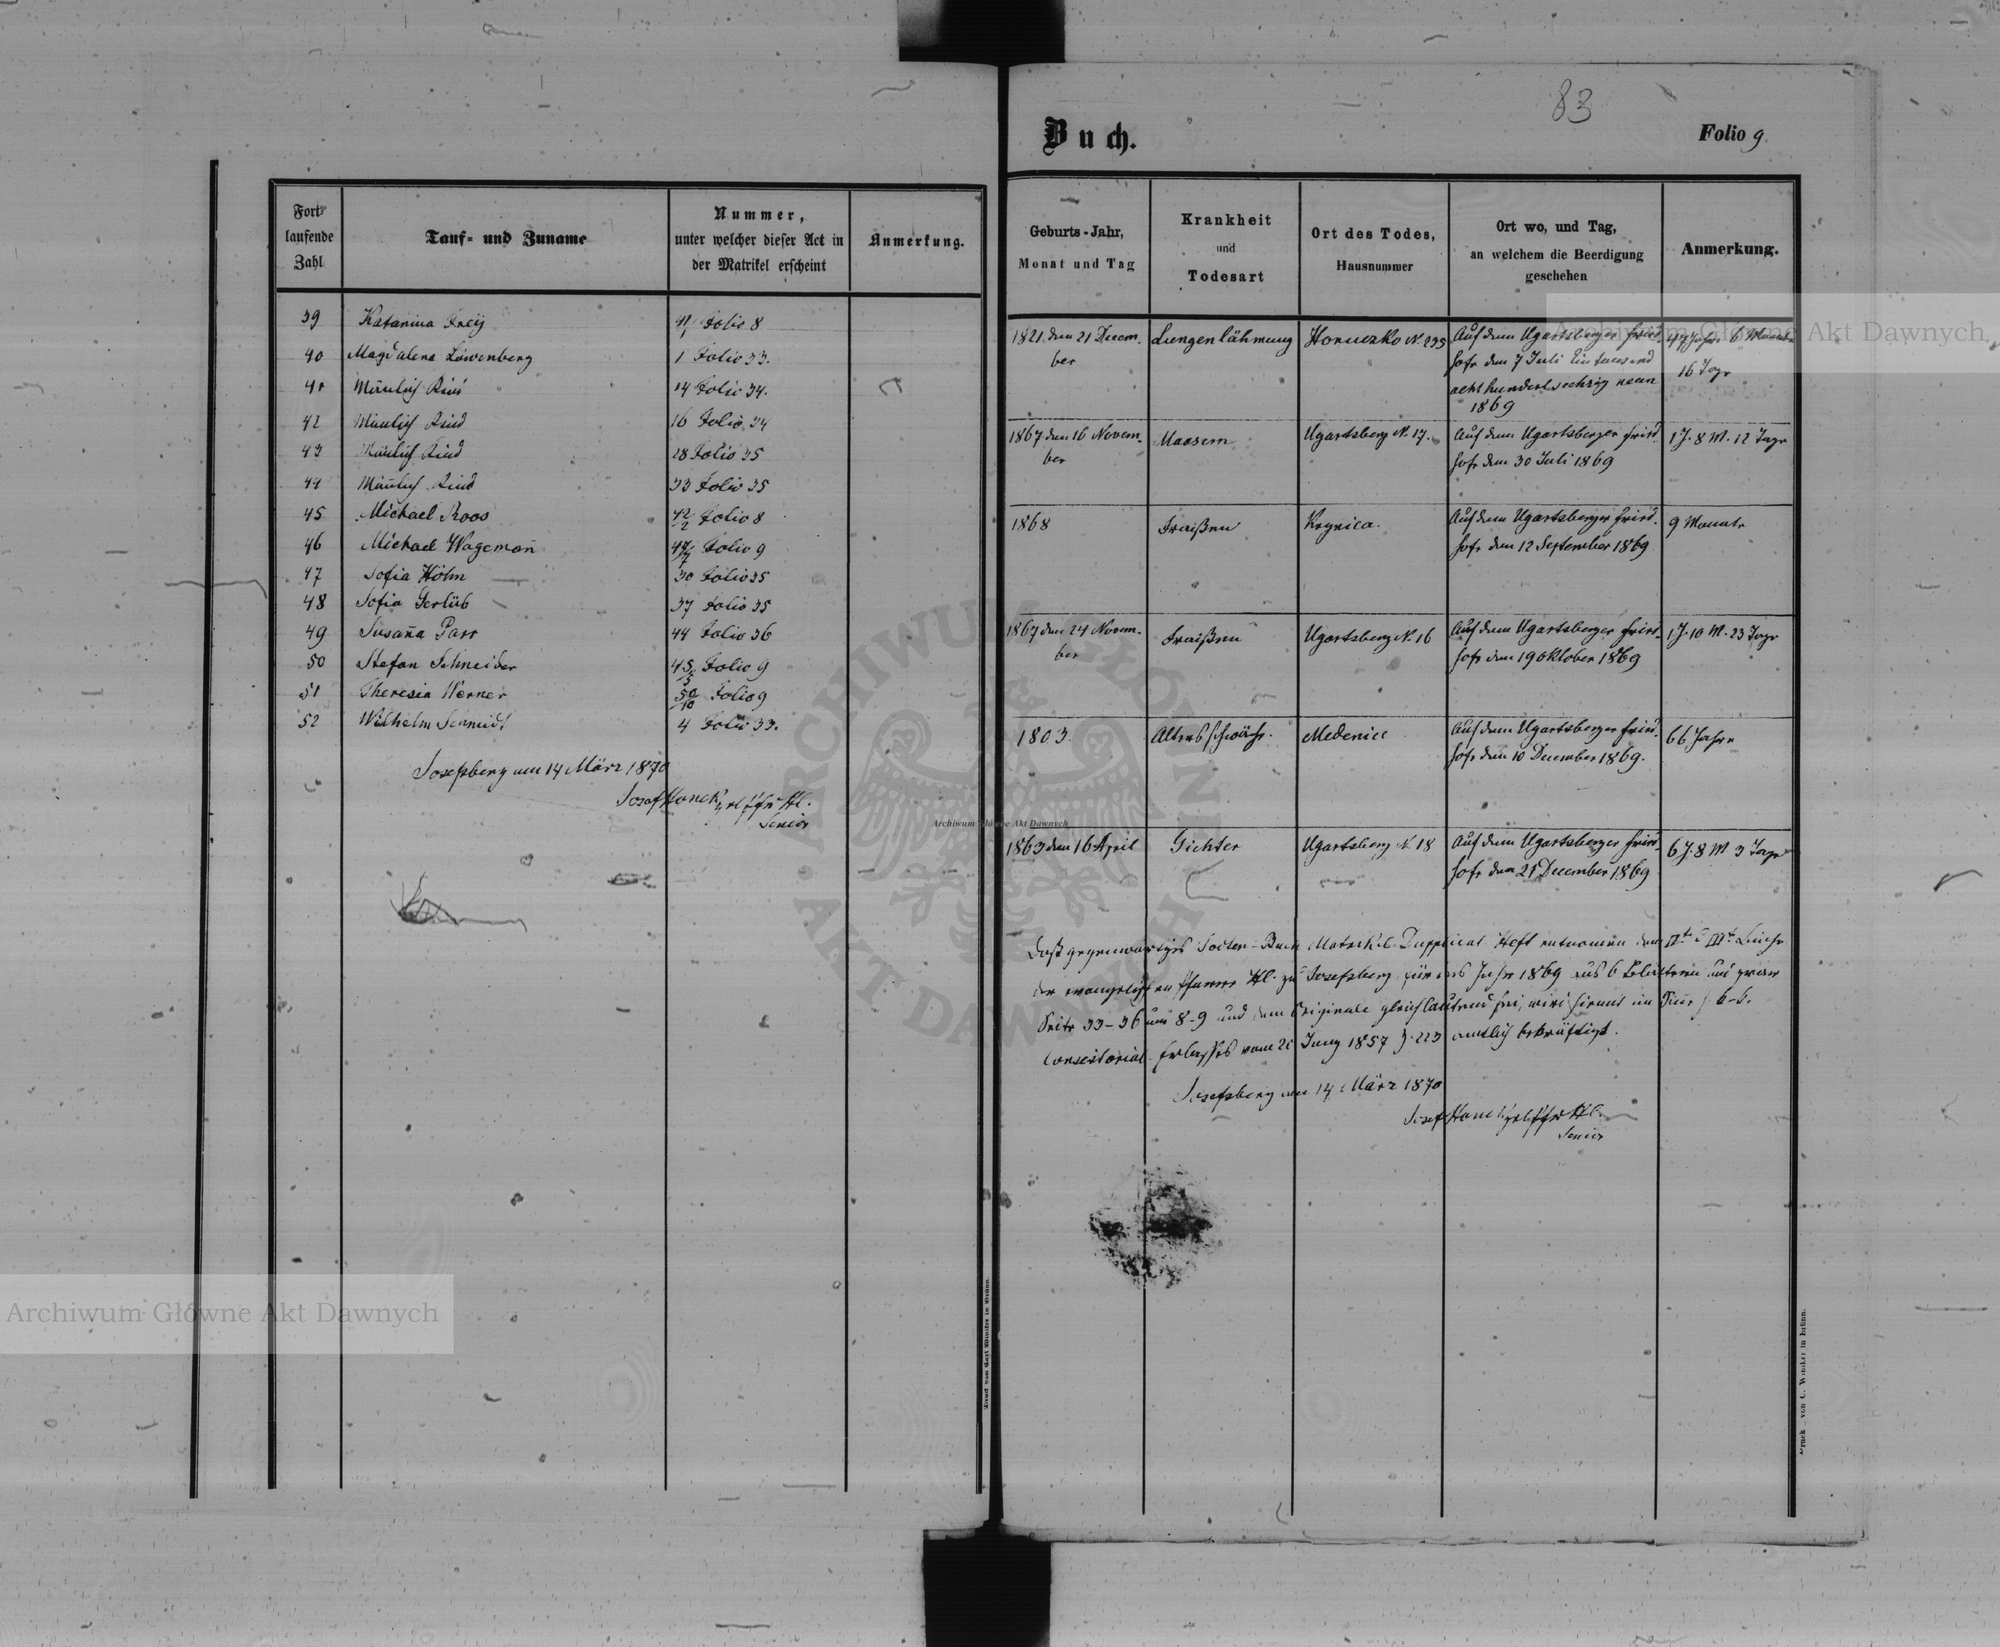 Fort-
laufende
Zahl
Tauf- und Zuname
Nummer,
unter welcher dieser Act in
der Matrikel erscheint
Anmerkung.
39 Katarina Frey 41/1 Folio 8
40 Magdalena Löwenberg 1 Folio 33.
41 Mänlich Kind 14 Folio 34.
42 Mänlich Kind 16 Folio 34
43 Mänlich Kind 28 Folio 35
44 Mänlich Kind 33 Folio 35
45 Michael Roos 42/2 Folio 8
46 Michael Wagemañ Folio 9
47 Sofia Höhn 30 Folio 35
48 Sofia Gerlüb 37 Folio 35
49 Susaña Parr 44 Folio 36
50 Stefan Schneider 45/5 Folio 9
51 Theresia Werner 50/10 Folio 9
52 Wilhelm Schmidt 4 Folio 33.
Josefsberg am 14 März 1870
Josef Honek
Senior
83
Buch.
Folio 9
Geburts-Jahr,
Monat und Tag
Krankheit
und
Todesart
Ort des Todes,
Hausnummer
Ort wo, und Tag,
an welchem die Beerdigung
geschehen
Anmerkung.
1821 den 21 Decem-
ber
Lungenlähmung
Horuczko N. 235
Auf dem Ugartsberger Fried-
hofe den 7 Juli Eintausend
achthundertsechzig neun
1869
47 Jahre 6 Monate
16 Tage
1867 den 16 Novem-
ber
Maasern
Ugartsberg N. 17.
Auf dem Ugartsberger Fried-
hofe den 30 Juli 1869
1 J. 8 M. 12 Tage
1868
Fraißen
Krynica.
Auf dem Ugartsberger Fried-
hofe den 12 September 1869
9 Monate
1867 den 24 Novem-
ber
Fraißen
Ugartsberg N. 16
Auf dem Ugartsberger Fried-
hofe den 19 Oktober 1869
1 J. 10 M. 23 Tage
1803.
Altersschwäche.
Medenice
Auf dem Ugartsberger Fried-
hofe den 10 December 1869.
66 Jahre
1863 den 16 April
Gichter
Ugartsberg N. 18
Auf dem Ugartsberger Fried-
hofe den 21 December 1869
6 J. 8 M 3 Tage
Daß gegenwärtiges Todten-Buch Matrikel Dupplicat Heft entnomen dem
der evangelischen Pfarre zu Josefsberg für das Jahr 1869 aus 6 Blättern und zwar
Seite 33-36 und 8-9 und dem Originale gleichlautend sei, wird hiemit im
Consistorial-Erlasses vom Juny 1857 Z. 223 amtlich bekräftigt.
Josefsberg am 14 März 1870
Josef Honek
Senior
Archiwum Główne Akt Dawnych
Archiwum Główne Akt Dawnych
Archiwum Główne Akt Dawnych
ARCHIWUM GŁÓWNE
AKT DAWNYCH